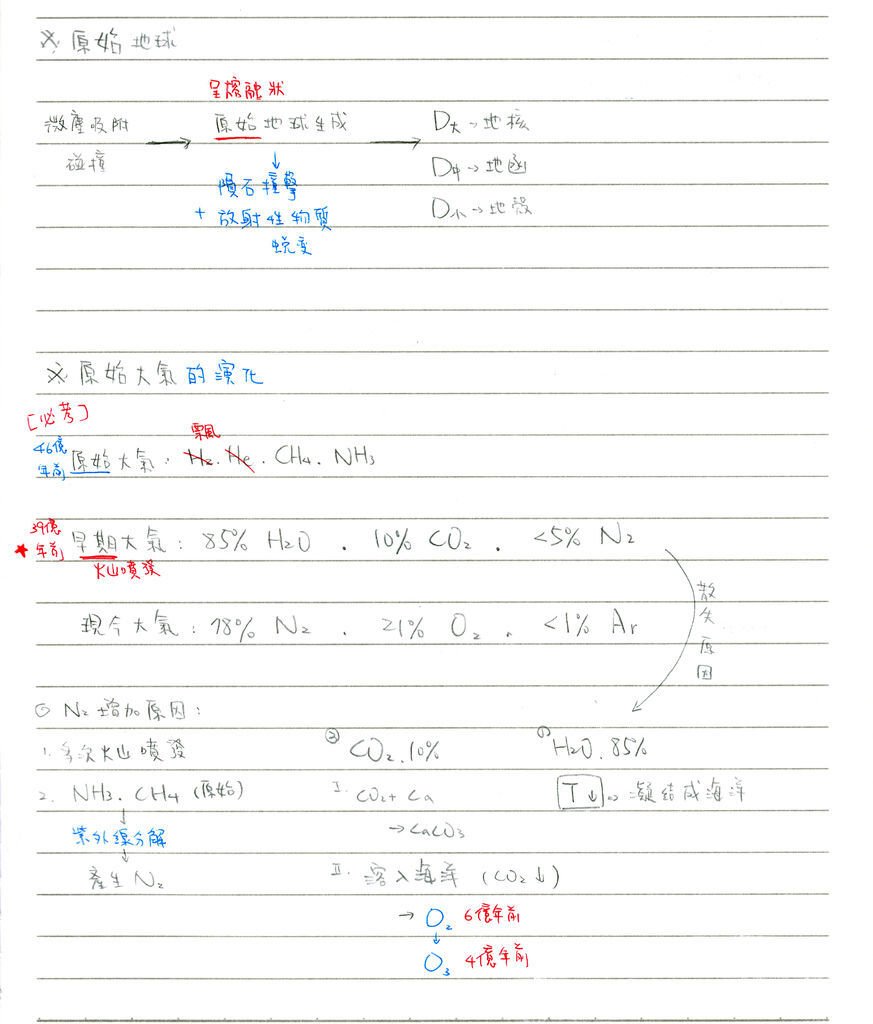 ※ 原始地球
呈熔融狀
微塵吸附 → 原始地球生成 → D大→地核
碰撞 ↓ D中→地函
隕石撞擊
+ 放射性物質 D小→地殼
蛻變
※ 原始大氣的演化
[必考]
飄
46億年前 原始大氣: H2. He. CH4. NH3
39億
★年前 早期大氣: 85% H2O . 10% CO2 . <5% N2
火山噴發
散失原因
現今大氣: 78% N2 . 21% O2 . <1% Ar
◎ N2 增加原因:
1. 多次火山噴發 ② CO2. 10% ① H2O. 85%
2. NH3. CH4 (原始) I. CO2 + Ca T↓。凝結成海洋
↓
紫外線分解 → CaCO3
↓
產生 N2 II. 溶入海洋 (CO2↓)
→ O2 6億年前
↓
O3 4億年前